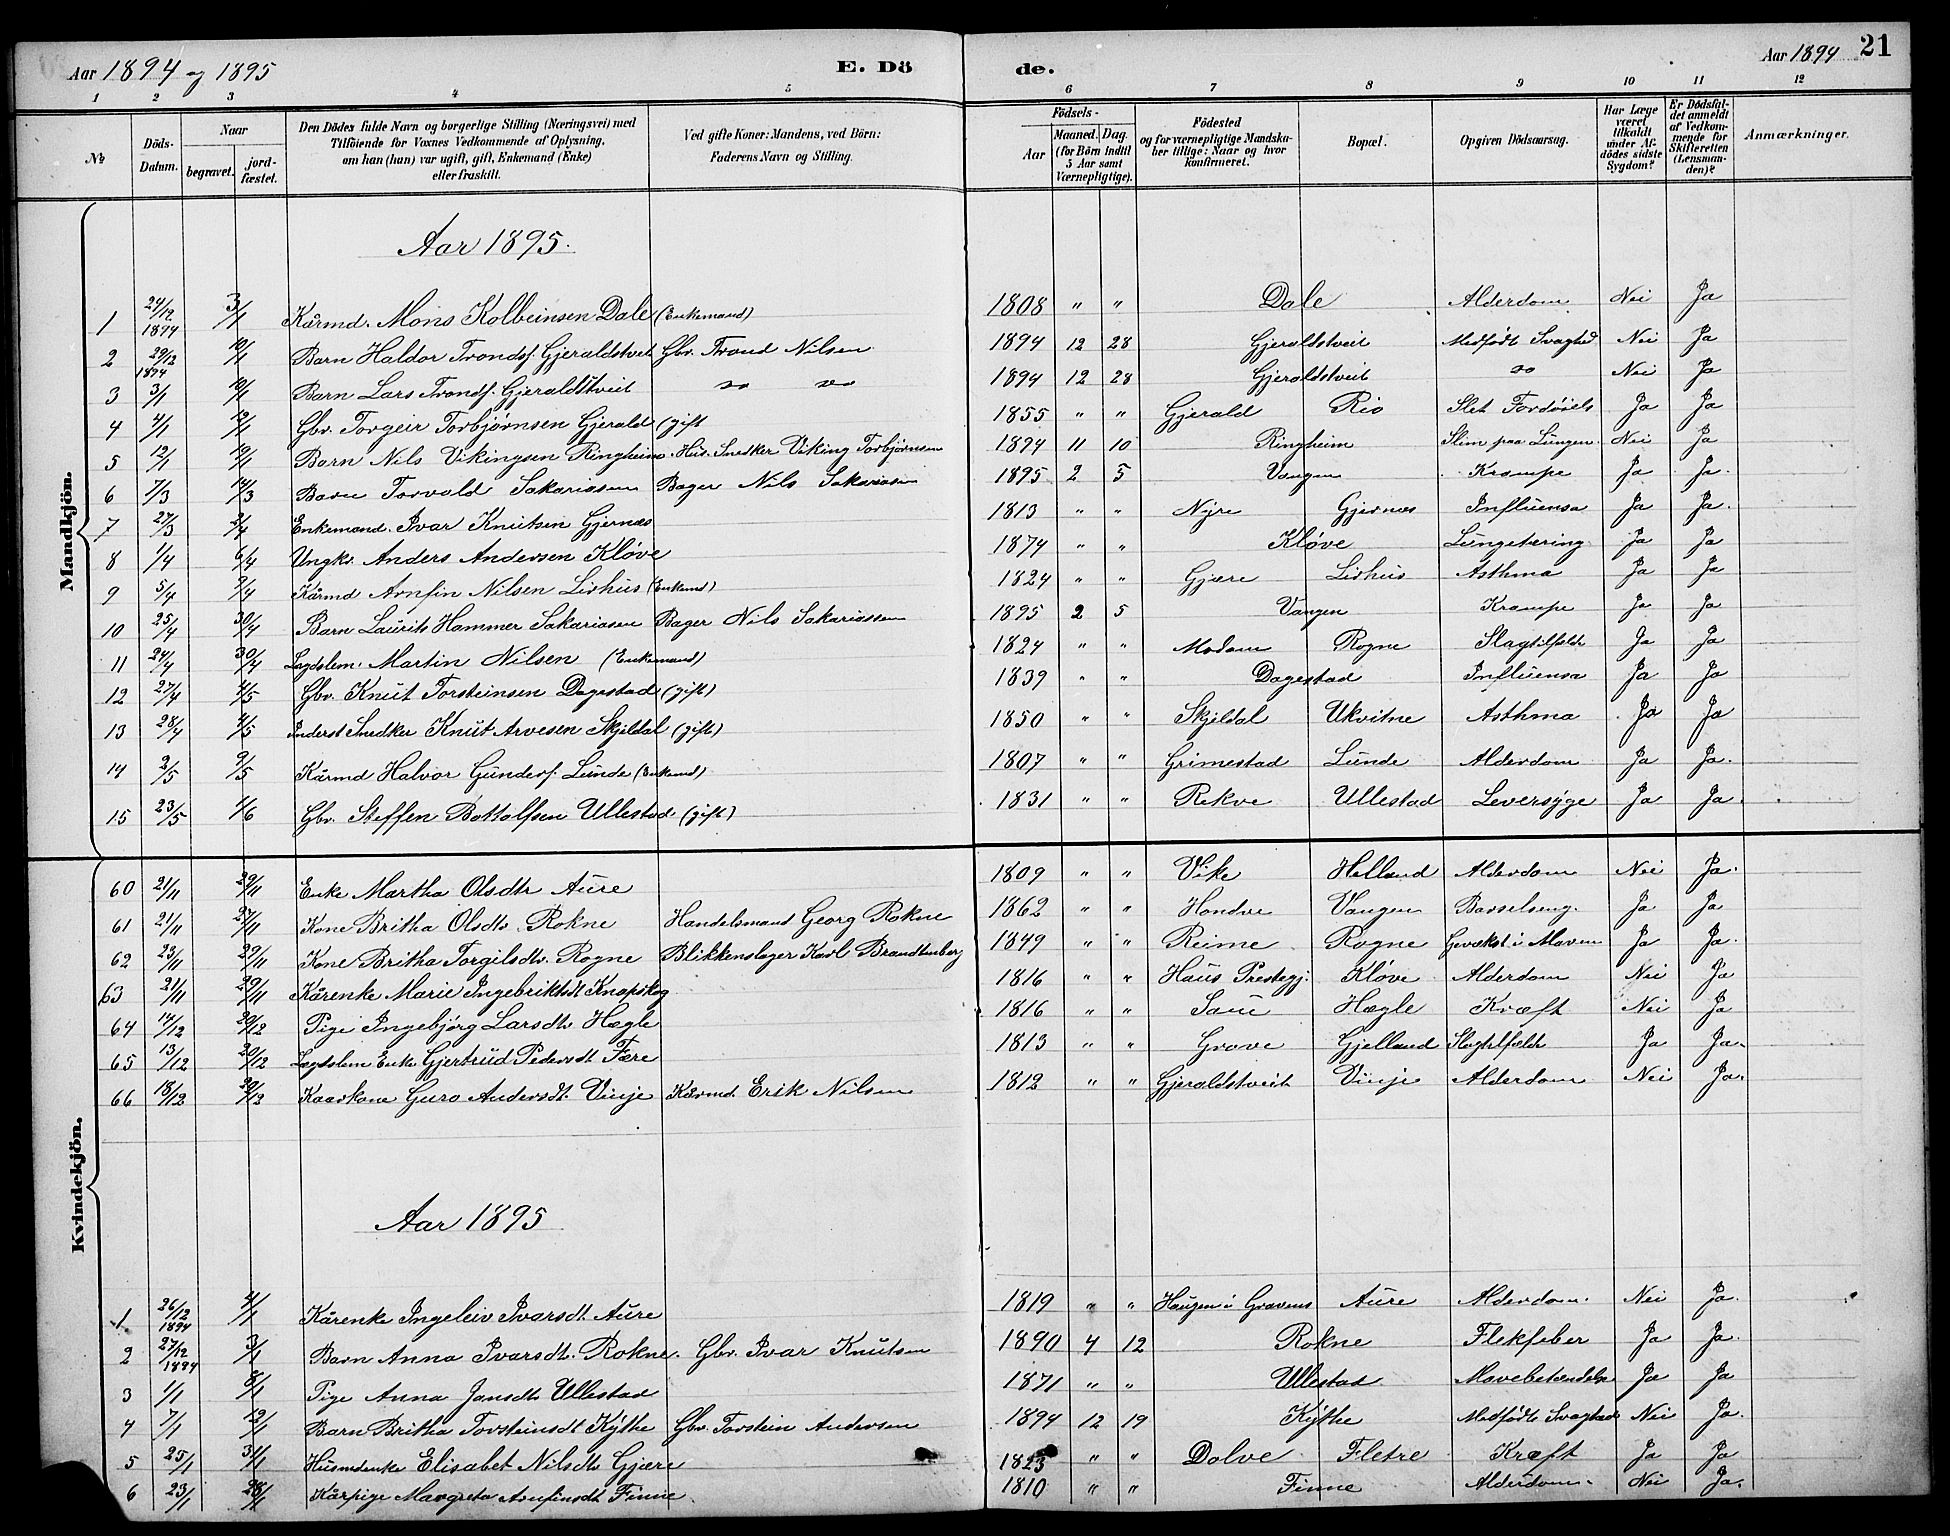 Aar 1894 og 1895 E. Dö de. Aar 1894 21
1 2 3 4 5 6 7 8 9 10 11 12
№ Döds-Datum. Naar begravet. jord-fæstet. Den Dödes fulde Navn og borgerlige Stilling (Næringsvei) med Tilföiende for Voxnes Vedkommende af Oplysning, om han (hun) var ugift, gift, Enkemand (Enke) eller fraskilt. Ved gifte Koner: Mandens, ved Börn: Faderens Navn og Stilling. Födsels- Aar Maaned. Dag. (for Börn indtil 5 Aar samt Værnepligtige). Födested og for værnepligtige Mandskaber tillige: Naar og hvor konfirmeret. Bopæl. Opgiven Dödsaarsag. Har Læge været tilkaldt under Afdödes sidste Sygdom? Er Dödsfaldet anmeldt af Vedkommende for Skifteretten (Lensmanden)? Anmærkninger.
Mandkjön.
Aar 1895.
1 24/12 1894 3/1 Kårmd. Mons Kolbeinsen Dale (Enkemand) 1808 " " Dale Alderdom Nei Ja
2 29/12 1894 12/1 Barn Haldor Tronds. Gjeraldstveit Gbr. Trond Nilsen 1894 12 28 Gjeraldstveit Medfödt Svaghed Nei Ja
3 3/1 12/1 Barn Lars Tronds. Gjeraldstveit " " 1894 12 28 Gjeraldstveit " Nei Ja
4 4/1 12/1 Gbr. Torgeir Torbjørnsen Gjerald (gift 1855 " " Gjerald Rio Slet Fordöiels Ja Ja
5 12/1 19/1 Barn Nils Vikingsen Ringheim Hus. Snedker Viking Torbjørnsen 1894 11 10 Ringheim Slim paa Lungen Nei Ja
6 7/3 14/3 Barn Torvald Sakariasen Bager Nils Sakariasen 1895 2 5 Vangen Krampe Ja Ja
7 27/3 2/4 Enkemand. Ivar Knutsen Gjernæs 1813 " " Nyre Gjernæs Influensa Ja Ja.
8 1/4 6/4 Ungk. Anders Andersen Kløve 1874 " " Kløve Lungetæring Ja Ja
9 5/4 9/4 Kårmd Arnfin Nilsen Lirhus (Enkemd) 1824 " " Gjære Lirhus Asthma Ja Ja
10 25/4 30/4 Barn Laurits Hammer Sakariasen Bager Nils Sakariassen 1895 2 5 Vangen Krampe Ja Ja
11 24/4 30/4 Lægdslem. Martin Nilsen (Enkemand) 1824 " " Modum Rogne Slagtilfælde Ja Ja
12 27/4 4/5 Gbr. Knut Torsteinsen Dagestad (gift) 1839 " " Dagestad Influensa Ja Ja
13 28/4 4/5 Inderst Snedker Knut Arvesen Skjeldal (gift) 1850 " " Skjeldal Ukvitne Asthma Ja Ja
14 2/5 9/5 Kårmd Halvor Gunders. Lunde (Enkemd) 1807 " " Grimestad Lunde Alderdom Ja Ja.
15 23/5 4/6 Gbr. Steffen Bottolfsen Ullestad (gift) 1831 " " Rekve Ullestad Leversyge Ja Ja.
Kvindekjön.
60 21/11 29/11 Enke Martha Olsdtr Aure 1809 " " Vike Helland Alderdom Nei Ja.
61 21/11 27/11 Kone Britha Olsdtr. Rokne Handelsmand Georg Rokne 1862 " " Hondve Vangen Barselseng Ja Ja
62 23/11 29/11 Kone Britha Torgilsdtr. Rogne Blikkenslager Karl Brandtenberg 1849 " " Reime Rogne Gevækst i Maven Ja Ja.
63 21/11 29/11 Kårenke Marie Ingebriktsdt Knapskog 1816 " " Haus Prestegj. Kløve Alderdom Nei Ja
64 14/12 20/12 Pige Ingebjörg Larsdtr. Hægle 1816 " " Saue Hægle Kræft Nei Ja
65 13/12 20/12 Lægdslem Enke Gjertrud Pedersdt Fære 1813 " " Grove Gjelland Slagtilfælde Ja Ja.
66 18/12 29/12 Kaarkone Guro Andersdt. Vinje Kårmd. Erik Nilsen 1812 " " Gjeraldstveit Vinje Alderdom Nei Ja.
Aar 1895
1 26/12 1894 4/1 Kårenke Ingeleiv Ivarsdt. Aure 1819 " " Haugen i Gravens Aure Alderdom. Nei Ja.
2 27/12 1894 3/1 Barn Anna Ivarsdt. Rokne. Gbr. Ivar Knutsen 1890 4 12 Rokne Flekfeber Ja Ja.
3 1/1 8/1 Pige Anna Jonsdtr Ullestad 1871 " " Ullestad Mavebetændelse Ja Ja
4 7/1 12/1 Barn Britha Torsteinsdt Kythe Gbr. Torstein Andersen 1894 12 19 Kythe Medfödt Svaghed Nei Ja.
5 25/1 31/1 Husmdenke Elisabet Nilsdtr Gjære 1823 " " Dolve Fletre Kræft Ja Ja
6 23/1 28/1 Kårpige Margreta Arnfinsdt Finne 1810 " " Finne Alderdom. Nei Ja.